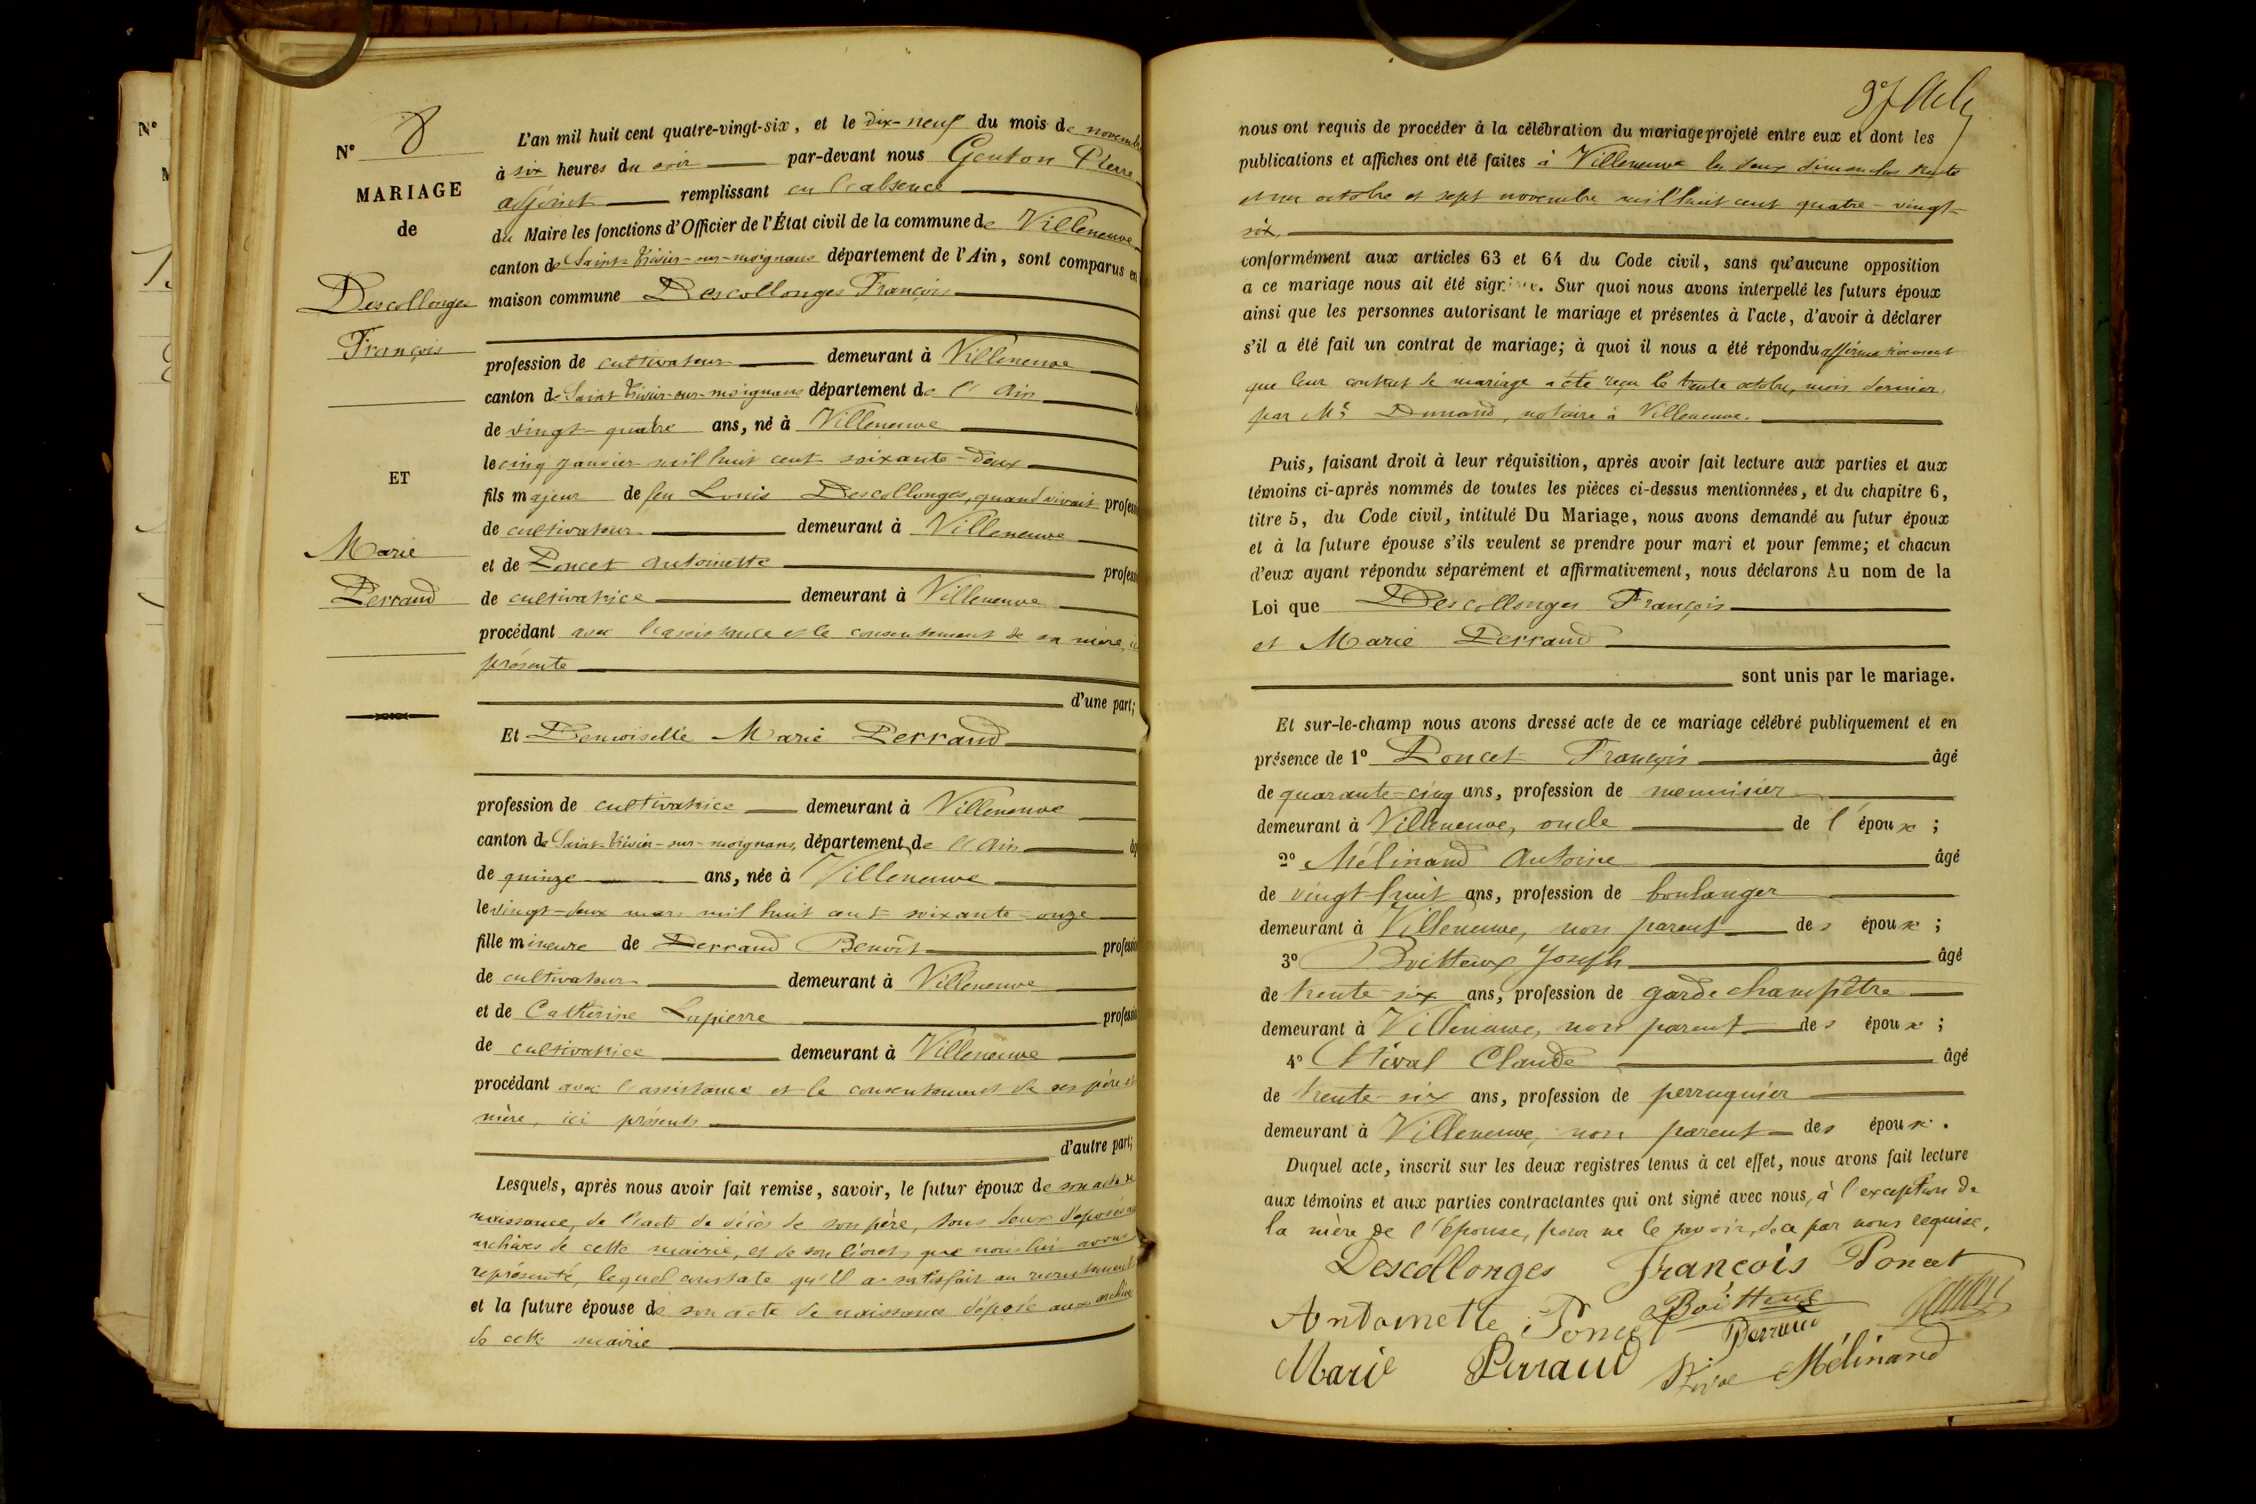 N° 8
MARIAGE
de
Descollonges
François
ET
Marie
Perraud
L'an mil huit cent quatre-vingt-six, et le dix-neuf du mois de novembre
à six heures du soir par-devant nous Genton Pierre
adjoint remplissant en l'absence
du Maire les fonctions d'Officier de l'État civil de la commune de Villeneuve
canton de Saint-Trivier-sur-moignans département de l'Ain, sont comparus en
maison commune Descollonges François
profession de cultivateur demeurant à Villeneuve
canton de Saint-Trivier-sur-moignans département de l'Ain
de vingt-quatre ans, né à Villeneuve
le cinq janvier mil huit cent soixante-deux
fils majeur de feu Louis Descollonges, quand vivait profession
de cultivateur demeurant à Villeneuve
et de Poncet Antoinette profession
de cultivatrice demeurant à Villeneuve
procédant avec l'assistance et le consentement de sa mère, ici
présente
d'une part;
Et Demoiselle Marie Perraud
profession de cultivatrice demeurant à Villeneuve
canton de Saint-Trivier-sur-moignans département de l'Ain
de quinze ans, née à Villeneuve
le vingt-deux mars mil huit cent soixante-onze
fille mineure de Perraud Benoît profession
de cultivateur demeurant à Villeneuve
et de Catherine Lapierre profession
de cultivatrice demeurant à Villeneuve
procédant avec l'assistance et le consentement de ses père et
mère, ici présents
d'autre part;
Lesquels, après nous avoir fait remise, savoir, le futur époux de son acte de
naissance, de l'acte de décès de son père, tous deux déposés aux
archives de cette mairie, et de son livret, que nous lui avons
représenté, lequel constate qu'il a satisfait au recrutement
et la future épouse de son acte de naissance déposé aux archives
de cette mairie
nous ont requis de procéder à la célébration du mariage projeté entre eux et dont les
publications et affiches ont été faites à Villeneuve les deux dimanches trente
et un octobre et sept novembre mil huit cent quatre-vingt-
six,
conformément aux articles 63 et 64 du Code civil, sans qu'aucune opposition
a ce mariage nous ait été signifiée. Sur quoi nous avons interpellé les futurs époux
ainsi que les personnes autorisant le mariage et présentes à l'acte, d'avoir à déclarer
s'il a été fait un contrat de mariage; à quoi il nous a été répondu affirmativement
que leur contrat de mariage a été reçu le trente octobre, mois dernier,
par Me Dunand, notaire à Villeneuve.
Puis, faisant droit à leur réquisition, après avoir fait lecture aux parties et aux
témoins ci-après nommés de toutes les pièces ci-dessus mentionnées, et du chapitre 6,
titre 5, du Code civil, intitulé Du Mariage, nous avons demandé au futur époux
et à la future épouse s'ils veulent se prendre pour mari et pour femme; et chacun
d'eux ayant répondu séparément et affirmativement, nous déclarons Au nom de la
Loi que Descollonges François
et Marie Perraud
sont unis par le mariage.
Et sur-le-champ nous avons dressé acte de ce mariage célébré publiquement et en
présence de 1° Poncet François âgé
de quarante-cinq ans, profession de menuisier
demeurant à Villeneuve, oncle de l'époux;
2° Mélinand Antoine âgé
de vingt-huit ans, profession de boulanger
demeurant à Villeneuve, non parent des époux;
3° Boitteux Joseph âgé
de trente-six ans, profession de garde champêtre
demeurant à Villeneuve, non parent des époux;
4° Claude âgé
de trente-six ans, profession de perruquier
demeurant à Villeneuve, non parent des époux.
Duquel acte, inscrit sur les deux registres tenus à cet effet, nous avons fait lecture
aux témoins et aux parties contractantes qui ont signé avec nous, à l'exception de
la mère de l'épouse, pour ne le savoir, de ce par nous requise.
Descollonges François Poncet
Antoinette Poncet Boitteux
Perraud
Marie Perraud Mélinand